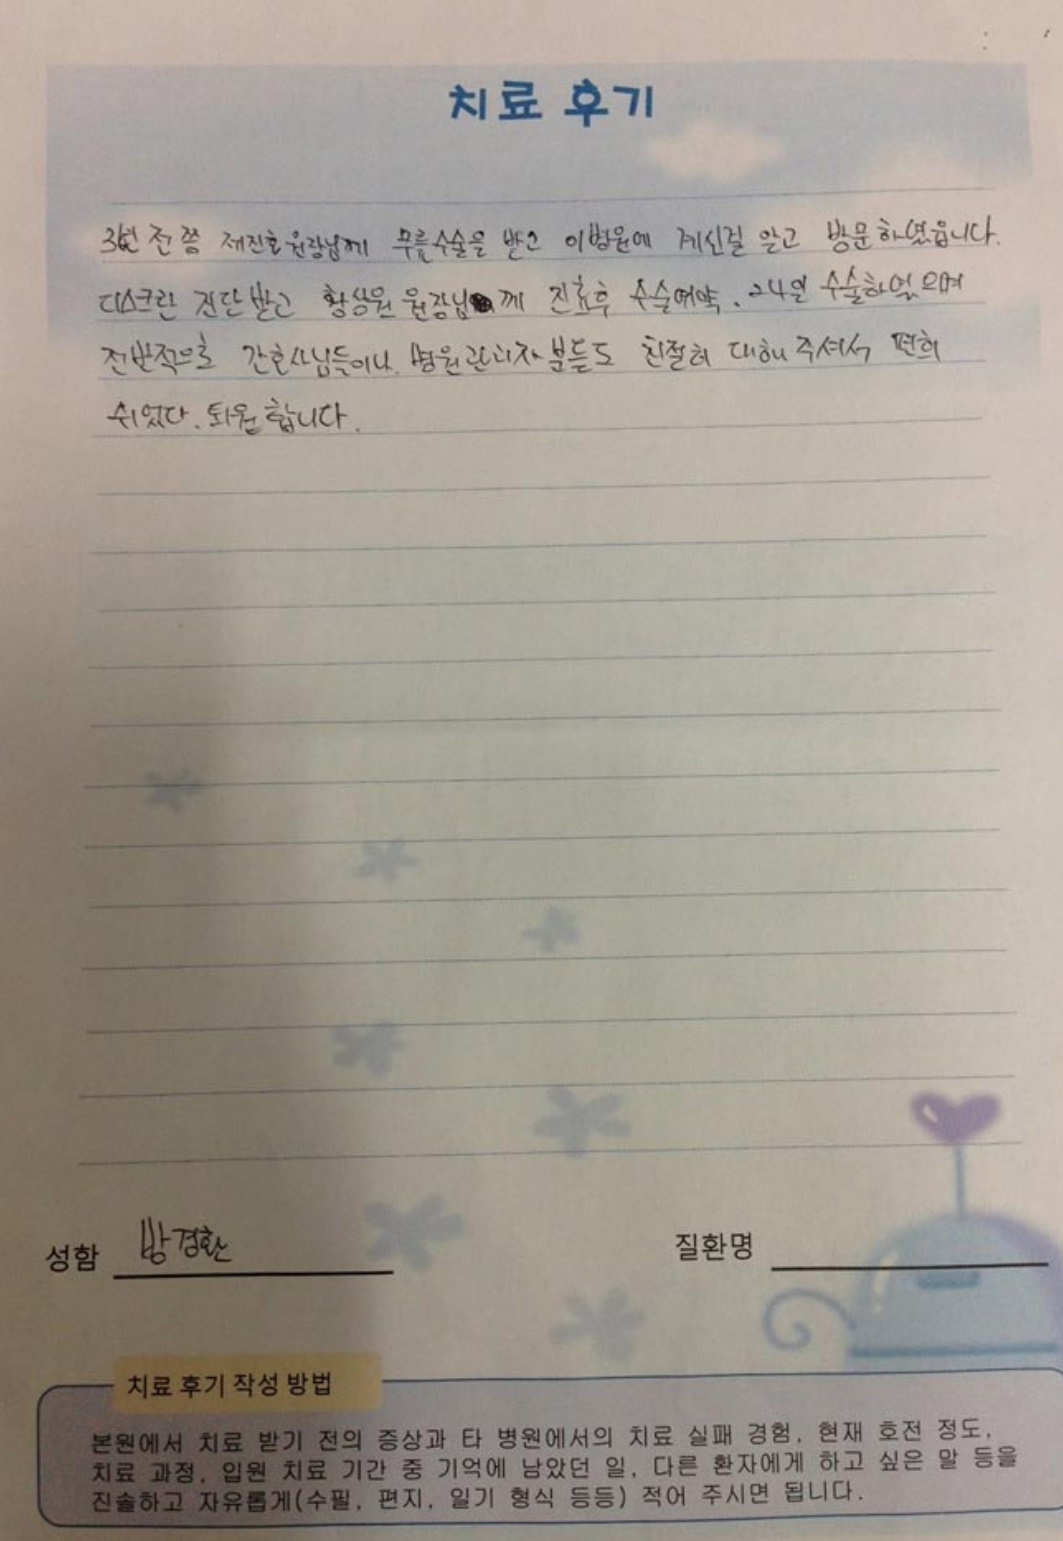 치료 후기
3년 전쯤 제진호원장님께 무릎수술을 받고 이병원에 계신걸 알고 방문하였읍니다.
디스크란 진단받고 황상원 원장님께 진료후 수술예약. 24일 수술하였으며
전반적으로 간호사님들이나 병원관리자분들도 친절히 대해 주셔서 편히
쉬었다. 퇴원합니다.
성함 방경환 질환명
치료 후기 작성 방법
본원에서 치료 받기 전의 증상과 타 병원에서의 치료 실패 경험, 현재 호전 정도,
치료 과정, 입원 치료 기간 중 기억에 남았던 일, 다른 환자에게 하고 싶은 말 등을
진솔하고 자유롭게(수필, 편지, 일기 형식 등등) 적어 주시면 됩니다.